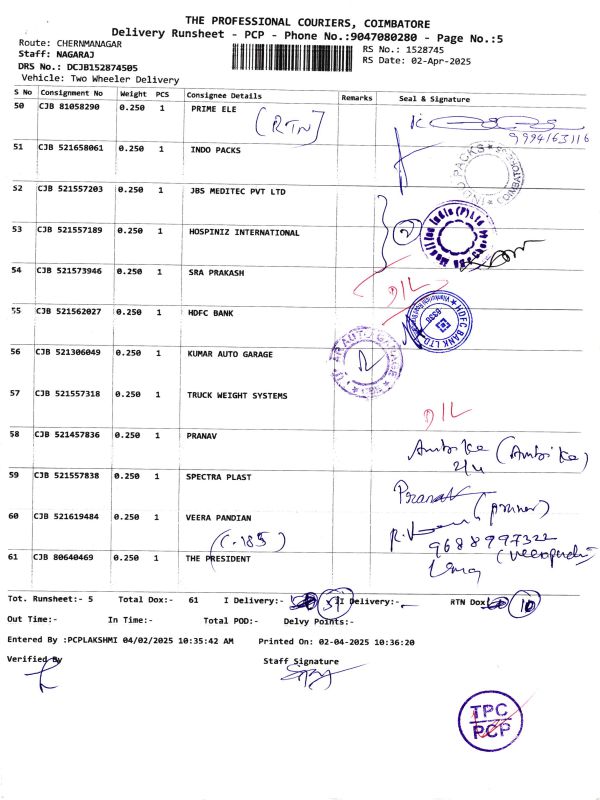 THE PROFESSIONAL COURIERS, COIMBATORE
Delivery Runsheet - PCP - Phone No.:9047080280 - Page No.:5
Route: CHERNMANAGAR
RS No.: 1528745
Staff: NAGARAJ
RS Date: 02-Apr-2025
DRS No.: DCJB152874505
Vehicle: Two Wheeler Delivery
S No Consignment No Weight PCS Consignee Details Remarks Seal & Signature
50 CJB 81058290 0.250 1 PRIME ELE
(RTN)
9994163116
51 CJB 521658061 0.250 1 INDO PACKS
INDO PACKS COIMBATORE
52 CJB 521557203 0.250 1 JBS MEDITEC PVT LTD
53 CJB 521557189 0.250 1 HOSPINIZ INTERNATIONAL
2
54 CJB 521573946 0.250 1 SRA PRAKASH
D/L
55 CJB 521562027 0.250 1 HDFC BANK
HDFC BANK LTD
56 CJB 521306049 0.250 1 KUMAR AUTO GARAGE
57 CJB 521557318 0.250 1 TRUCK WEIGHT SYSTEMS
D/L
58 CJB 521457836 0.250 1 PRANAV
Ambika (Ambika)
2/4
59 CJB 521557838 0.250 1 SPECTRA PLAST
Pranav
60 CJB 521619484 0.250 1 VEERA PANDIAN
(.185)
9688997322
61 CJB 80640469 0.250 1 THE PRESIDENT
Tot. Runsheet:- 5 Total Dox:- 61 I Delivery:- 51 II Delivery:- RTN Dox:- 10
Out Time:- In Time:- Total POD:- Delvy Points:-
Entered By :PCPLAKSHMI 04/02/2025 10:35:42 AM Printed On: 02-04-2025 10:36:20
Verified By Staff Signature
TPC
PCP